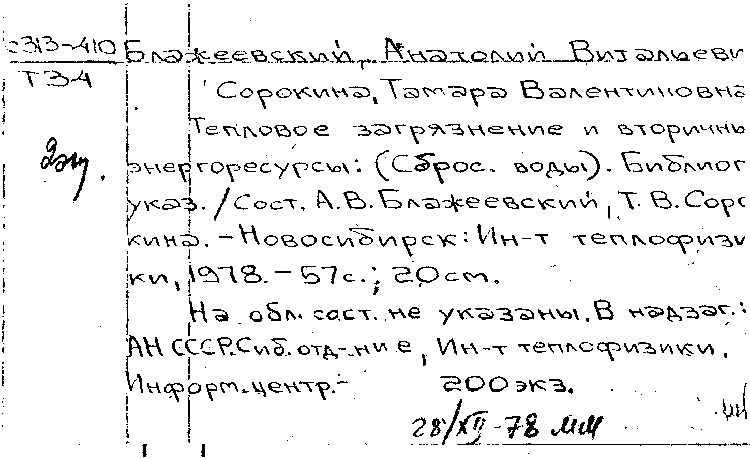 с313-410 Блажеевский, Анатолий Витальеви
Т34
Сорокина, Тамара Валентиновна
Тепловое загрязнение и вторичны
2эк.
энергоресурсы: (Сброс. воды). Библиог
указ. / Сост. А.В. Блажеевский, Т.В. Соро
кина. - Новосибирск: Ин-т теплофизи
ки, 1978. - 57с.; 20см.
На обл. сост. не указаны. В надзаг.:
АН СССР. Сиб. отд-ние, Ин-т теплофизики.
Информ. центр. - 200экз.
28/XII-78 мм